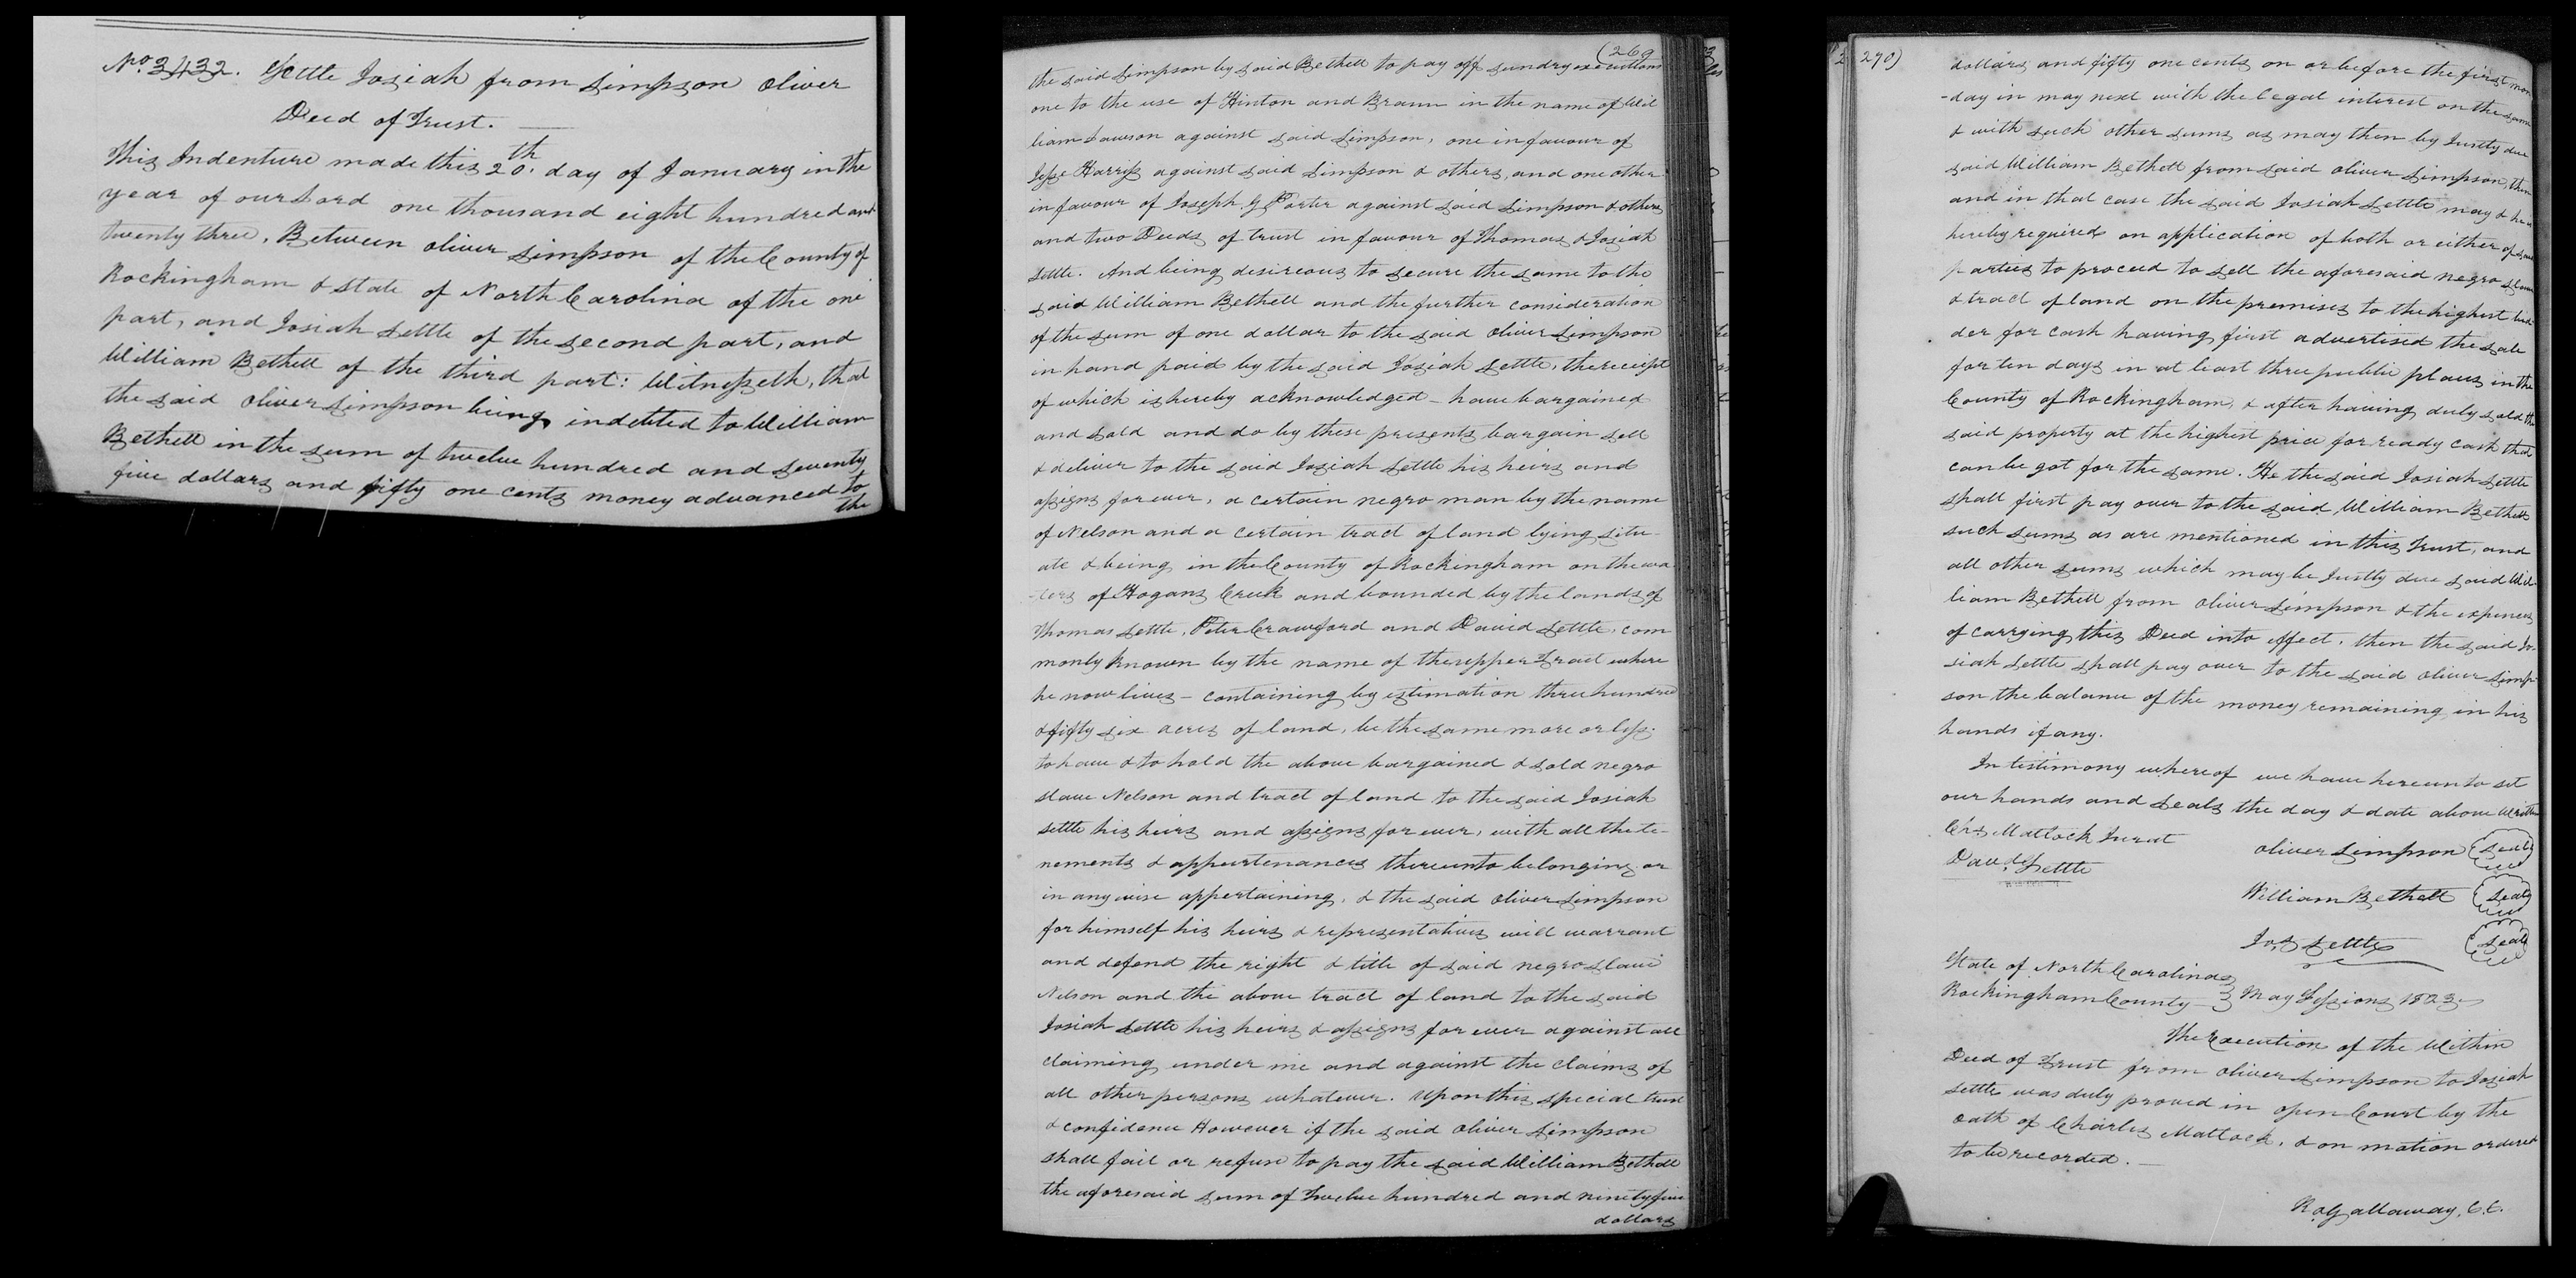 No. 3432. Settle Josiah from Simpson Oliver
Deed of Trust.
This Indenture made this 20th. day of January in the
year of our Lord one thousand eight hundred and
twenty three, Between Oliver Simpson of the County of
Rockingham & state of North Carolina of the one
part, and Josiah Settle of the second part, and
William Bethell of the third part: Witnesseth, that
the said Oliver Simpson being indebted to William
Bethell in the sum of twelve hundred and seventy
five dollars and fifty one cents money advanced to
the
(269
the said Simpson by said Bethell to pay off sundry executions
one to the use of Hinton and Braun in the name of Wil
liam Lawson against said Simpson, one in favour of
Jesse Harriss against said Simpson & others, and one other
in favour of Joseph G Porter against said Simpson & others
and two Deeds of trust in favour of Thomas & Josiah
Settle. And being desireous to secure the same to the
said William Bethell and the further consideration
of the sum of one dollar to the said Oliver Simpson
in hand paid by the said Josiah Settle, the receipt
of which is hereby acknowledged - have bargained
and sold and do by these presents bargain sell
& deliver to the said Josiah Settle his heirs and
assigns forever, a certain negro man by the name
of Nelson and a certain tract of land lying situ-
ate & being in the County of Rockingham on the wa
-ters of Hogans Creek and bounded by the lands of
Thomas Settle, Peter Crawford and David Settle, com
monly known by the name of the upper Tract where
he now lives - containing by estimation three hundred
& fifty six acres of land, be the same more or less.
to have & to hold the above bargained & sold negro
slave Nelson and tract of land to the said Josiah
Settle his heirs and assigns forever, with all the te-
nements & appurtenances thereunto belonging or
in any wise appertaining, & the said Oliver Simpson
for himself his heirs & representatives will warrant
and defend the right & title of said negro slave
Nelson and the above tract of land to the said
Josiah Settle his heirs & assigns for ever against all
claiming under me and against the claims of
all other persons whatever. Upon this special trust
& confidence However if the said Oliver Simpson
shall fail or refuse to pay the said William Bethell
the aforesaid sum of Twelve hundred and ninety five
dollars
270)
dollars and fifty one cents on or before the first mon
-day in may next with the legal interest on the same
& with such other sums as may then by Justly due
said William Bethell from said Oliver Simpson, then
and in that case the said Josiah Settle may & he is
hereby required on application of both or either of said
parties to proceed to sell the aforesaid negro slave
& tract of land on the premises to the highest bid-
der for cash having first advertised the sale
for ten days in at least three public places in the
County of Rockingham, & after having duly sold the
said property at the highest price for ready cash that
can be got for the same. He the said Josiah Settle
shall first pay over to the said William Bethell
such sums as are mentioned in this Trust, and
all other sums which may be Justly due said Wil-
liam Bethell from Oliver Simpson & the expences
of carrying this Deed into effect, then the said Jo-
siah Settle shall pay over to the said Oliver Simp-
son the balance of the money remaining in his
hands if any.
In testimony whereof we have hereunto set
our hands and seals the day & date above written
Chs. Matlock Jurat
Oliver Simpson (Seal)
David Settle
William Bethell (Seal)
Jos. Settle (Seal)
State of North Carolina
Rockingham County } May Sessions 1823
The Execution of the Within
Deed of Trust from Oliver Simpson to Josiah
Settle was duly proved in open Court by the
oath of Charles Matlock, & on motion ordered
to be recorded.
Ro. Gallaway, C.C.